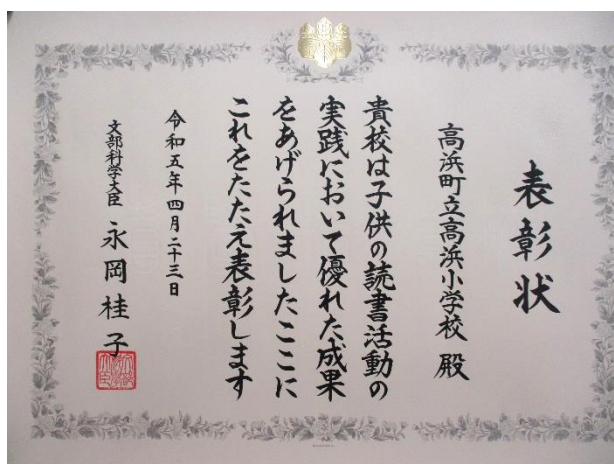 表彰状
高浜町立高浜小学校 殿
貴校は子供の読書活動の
実践において優れた成果
をあげられましたここに
これをたたえ表彰します
令和五年四月二十三日
文部科学大臣 永岡桂子